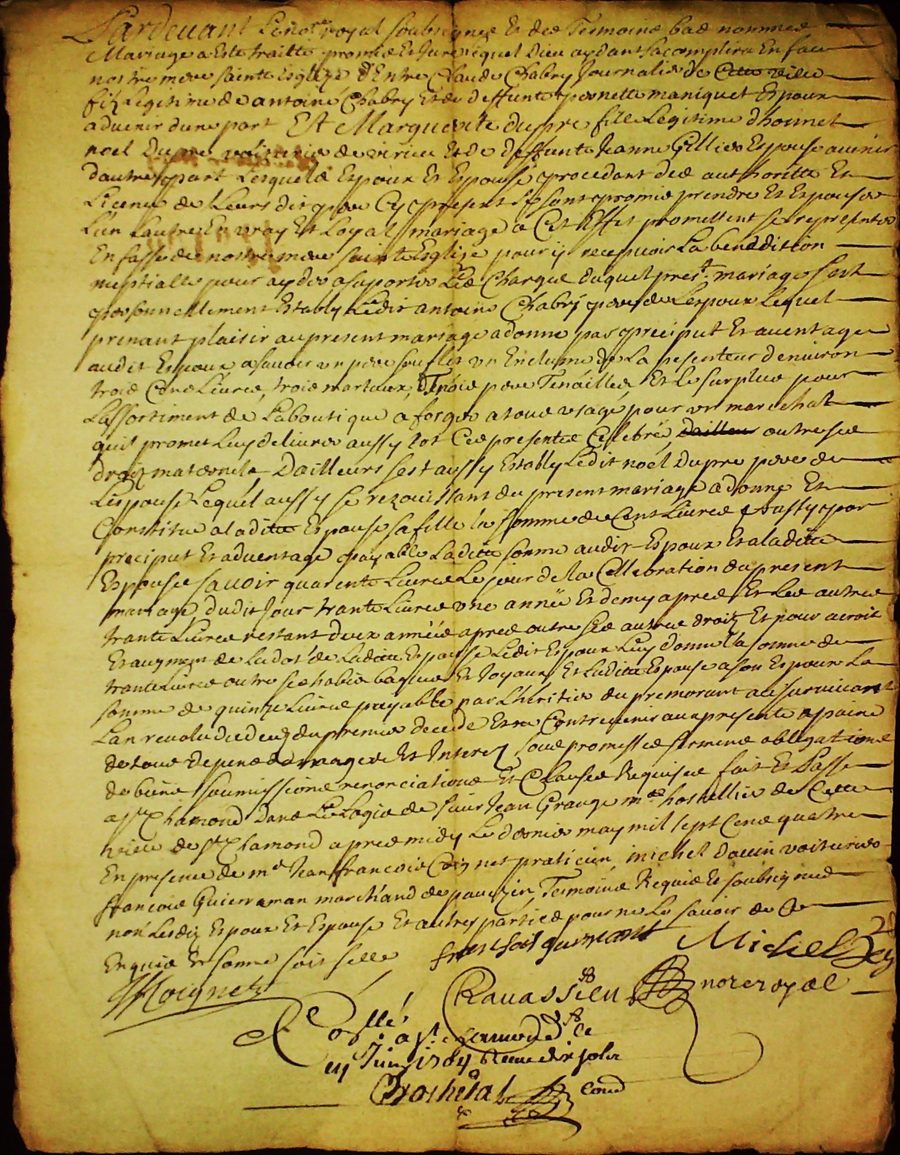 Pardevant Le not.re royal soubsigné Et des Temoins bas nommes
Mariage a Este traitte promis Et Jure Lequel Dieu aydant sacomplira En face
nostre mere sainte Esglize Entre Claude Chabry Journalier de Cette ville
fiz Legitime de antoine Chabry Et de deffunte pernette maniquet Espoux
advenir dune part Et Marguerite dupre fille Legitime dhonnet
noel Dupre de Et de deffunte Jeanne Gillier Espouse avenir
dautre part Lesquels Espoux Et Espouse procedant des authoritte Et
Licence de Leurs dit pere Cy present se sont promis prendre Et Espouser
Lun Lautre En vray Et Loyal mariage a Cet Effet promettent se represanter
En fasse de nostre mere sainte Esglize pour y recepvoir La benediction
nuptialle pour aydes a suporter Les Charges duquel pres.t mariage sest
personnellement Estably Ledit antoine Chabry pere de Lespoux Lequel
prenant plaisir au present mariage a donne par preciput Et aventage
audit Espoux asavoir un pere souflet un Enclume de La pesenteur denviron
trois Cens Livres, trois marteaux, Trois pere Tenailles Et Le surplus pour
Lassortiment de La boutique a forges a tous usage pour un marechal
quil promet Luy delivrer aussy tot Ces presentes Celebré outre ses
droiz maternels Dailleurs sest aussy Estably Ledit noel dupre pere de
Lespouse Lequel aussy se rejouissant du present mariage a donne Et
Constitue a ladite Espouse sa fille la somme de Cent Livres Aussy par
preciput Et adventage payable Ladite somme audit Espoux Et a ladite
Espouse savoir quarente Livres Le jour de la Cellebration du present
mariage dudit Jour trante Livres une année Et demy apres Et Les autres
trante Livres restant deux années apres outre ses autres droiz Et pour acroit
Et augment de La dot de Ladite Espouse Ledit Espoux Luy donne la somme de
trante Livres outre ses habis bagues Et Joyaux Et Ladite Espouse a son Espoux La
somme de quinze Livres payable par Lheritier du premorant au survivant
Lan revolu du deces du premier decede Et a Contrevenir aux presente a paine
de tous depens domages Et Interez sous promesses sermens obligations
de biens soumissions renonciations Et Clauses Requises fait Et Passe
a St Chamond Dans Le Logis de sieur Jean Grange m.e hostellier de Cette
ville de St Chamond apres midy Le dernier may mil sept Cens quatre
En presence de m.e Jean francois praticien, michel voiturier
francois Guierraman marchand de Temoins Requis Et soubsignes
non Lesdiz Espoux Et Espouse Et autres parties pour ne Le savoir de Ce
Enquis Et somme soit selle
Michel
Ravassieu not.re royal
Con.llé
a St Chamond
Juin 1704 Reçu dix sols